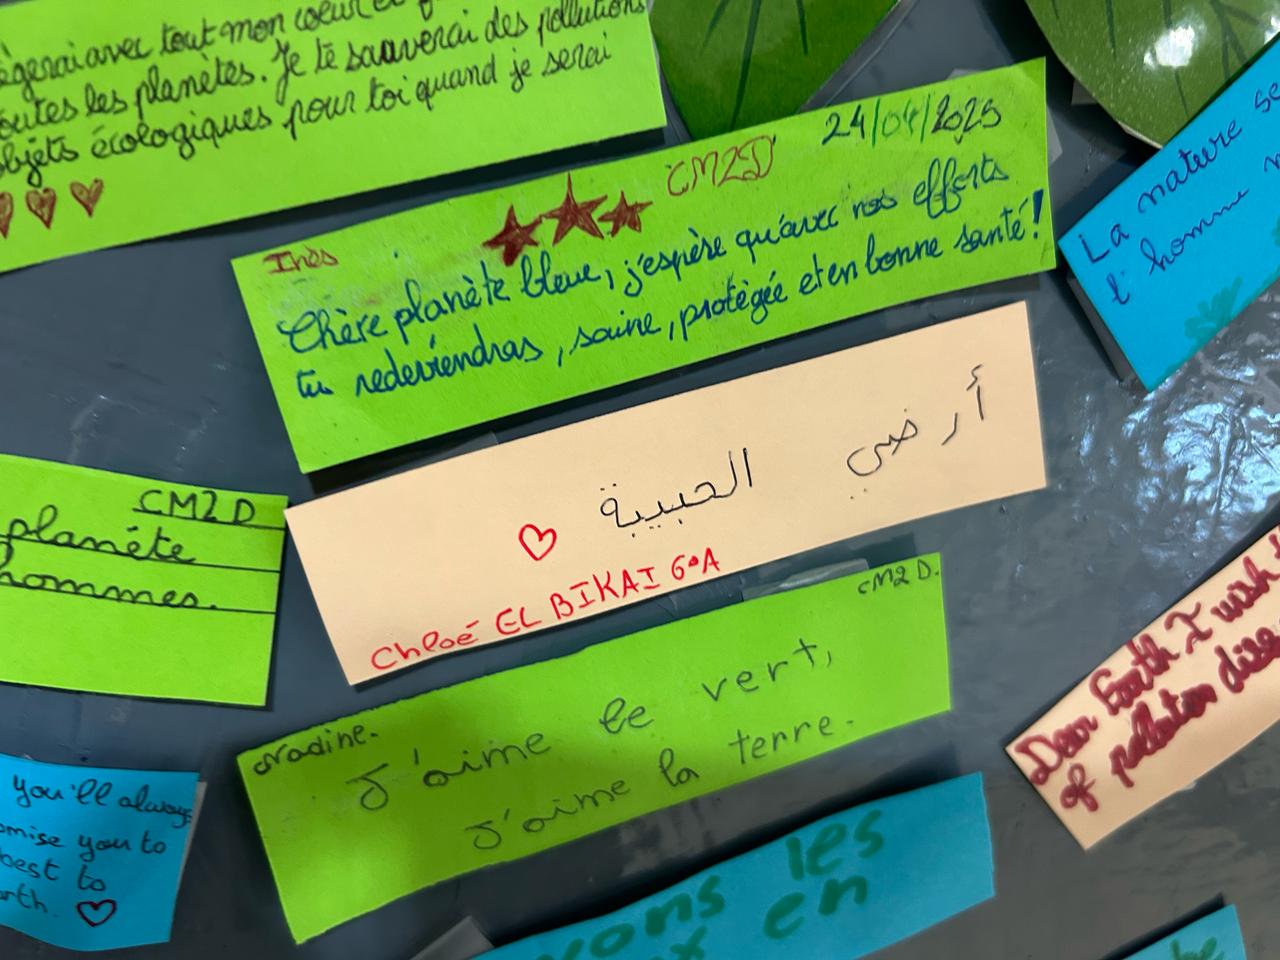 tout mon cœur
toutes les planètes. Je te sauverai des pollutions
objets écologiques pour toi quand je serai
Inès
CM2D
24/04/2025
Chère planète bleue, j'espère qu'avec nos efforts
tu redeviendras, saine, protégée et en bonne santé!
La nature
l'homme
أرضي الحبيبة
Chloé EL BIKAI 6°A
CM2 D
planète
hommes.
CM2 D.
Nadine.
J'aime le vert,
J'aime la terre.
Dear Earth I wish
of pollution
you'll always
you to
best to
les
en